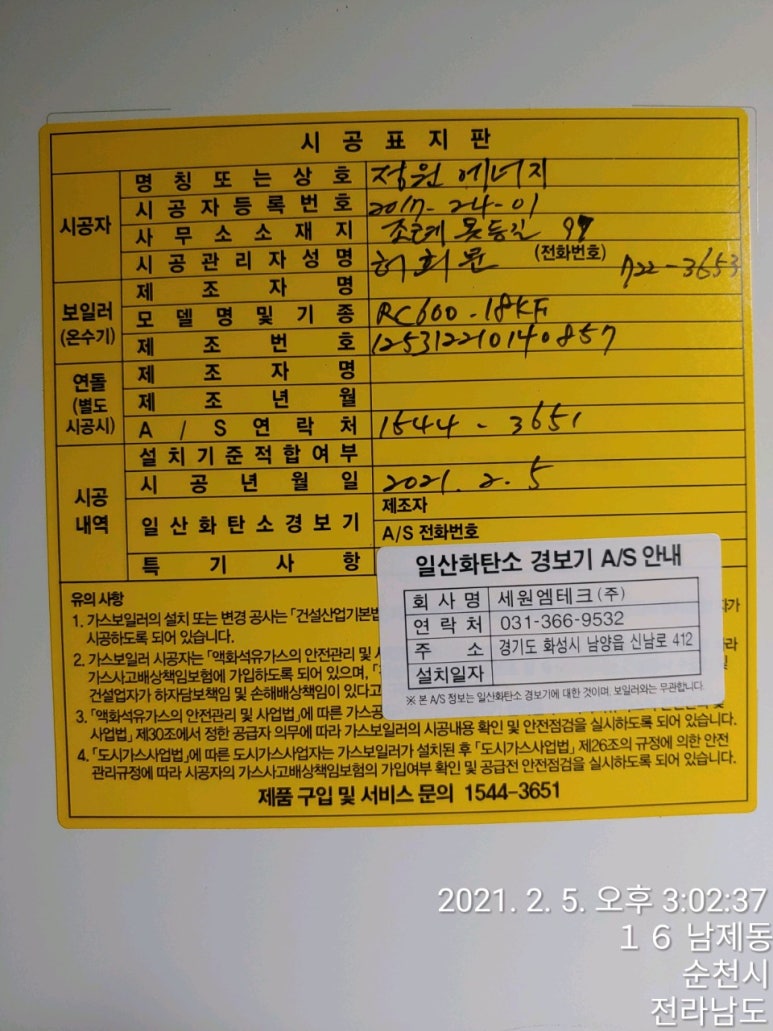 시공표지판
시공자
명칭또는상호 정원 에너지
시공자등록번호 2017-24-01
사무소소재지 조례못등길 97
시공관리자성명 허회윤 (전화번호) 722-3653
보일러
(온수기)
제조자명
모델명및기종 RC600-18KF
제조번호 125312210140857
연돌
(별도
시공시)
제조자명
제조년월
A/S연락처 1544-3651
시공
내역
설치기준적합여부
시공년월일 2021.2.5
일산화탄소경보기 제조자
A/S 전화번호
특기사항
일산화탄소 경보기 A/S 안내
회사명 세원엠테크(주)
연락처 031-366-9532
주소 경기도 화성시 남양읍 신남로 412
설치일자
※ 본 A/S 정보는 일산화탄소 경보기에 대한 것이며, 보일러와는 무관합니다.
유의사항
1. 가스보일러의 설치 또는 변경 공사는 「건설산업기본법
시공하도록 되어 있습니다.
2. 가스보일러 시공자는 「액화석유가스의 안전관리 및 사
가스사고배상책임보험에 가입하도록 되어 있으며,
건설업자가 하자담보책임 및 손해배상책임이 있다고
3. 「액화석유가스의 안전관리 및 사업법」에 따른 가스공
사업법」 제30조에서 정한 공급자 의무에 따라 가스보일러의 시공내용 확인 및 안전점검을 실시하도록 되어 있습니다.
4. 「도시가스사업법」에 따른 도시가스사업자는 가스보일러가 설치된 후 「도시가스사업법」 제26조의 규정에 의한 안전
관리규정에 따라 시공자의 가스사고배상책임보험의 가입여부 확인 및 공급전 안전점검을 실시하도록 되어 있습니다.
제품 구입 및 서비스 문의 1544-3651
2021. 2. 5. 오후 3:02:37
16 남제동
순천시
전라남도